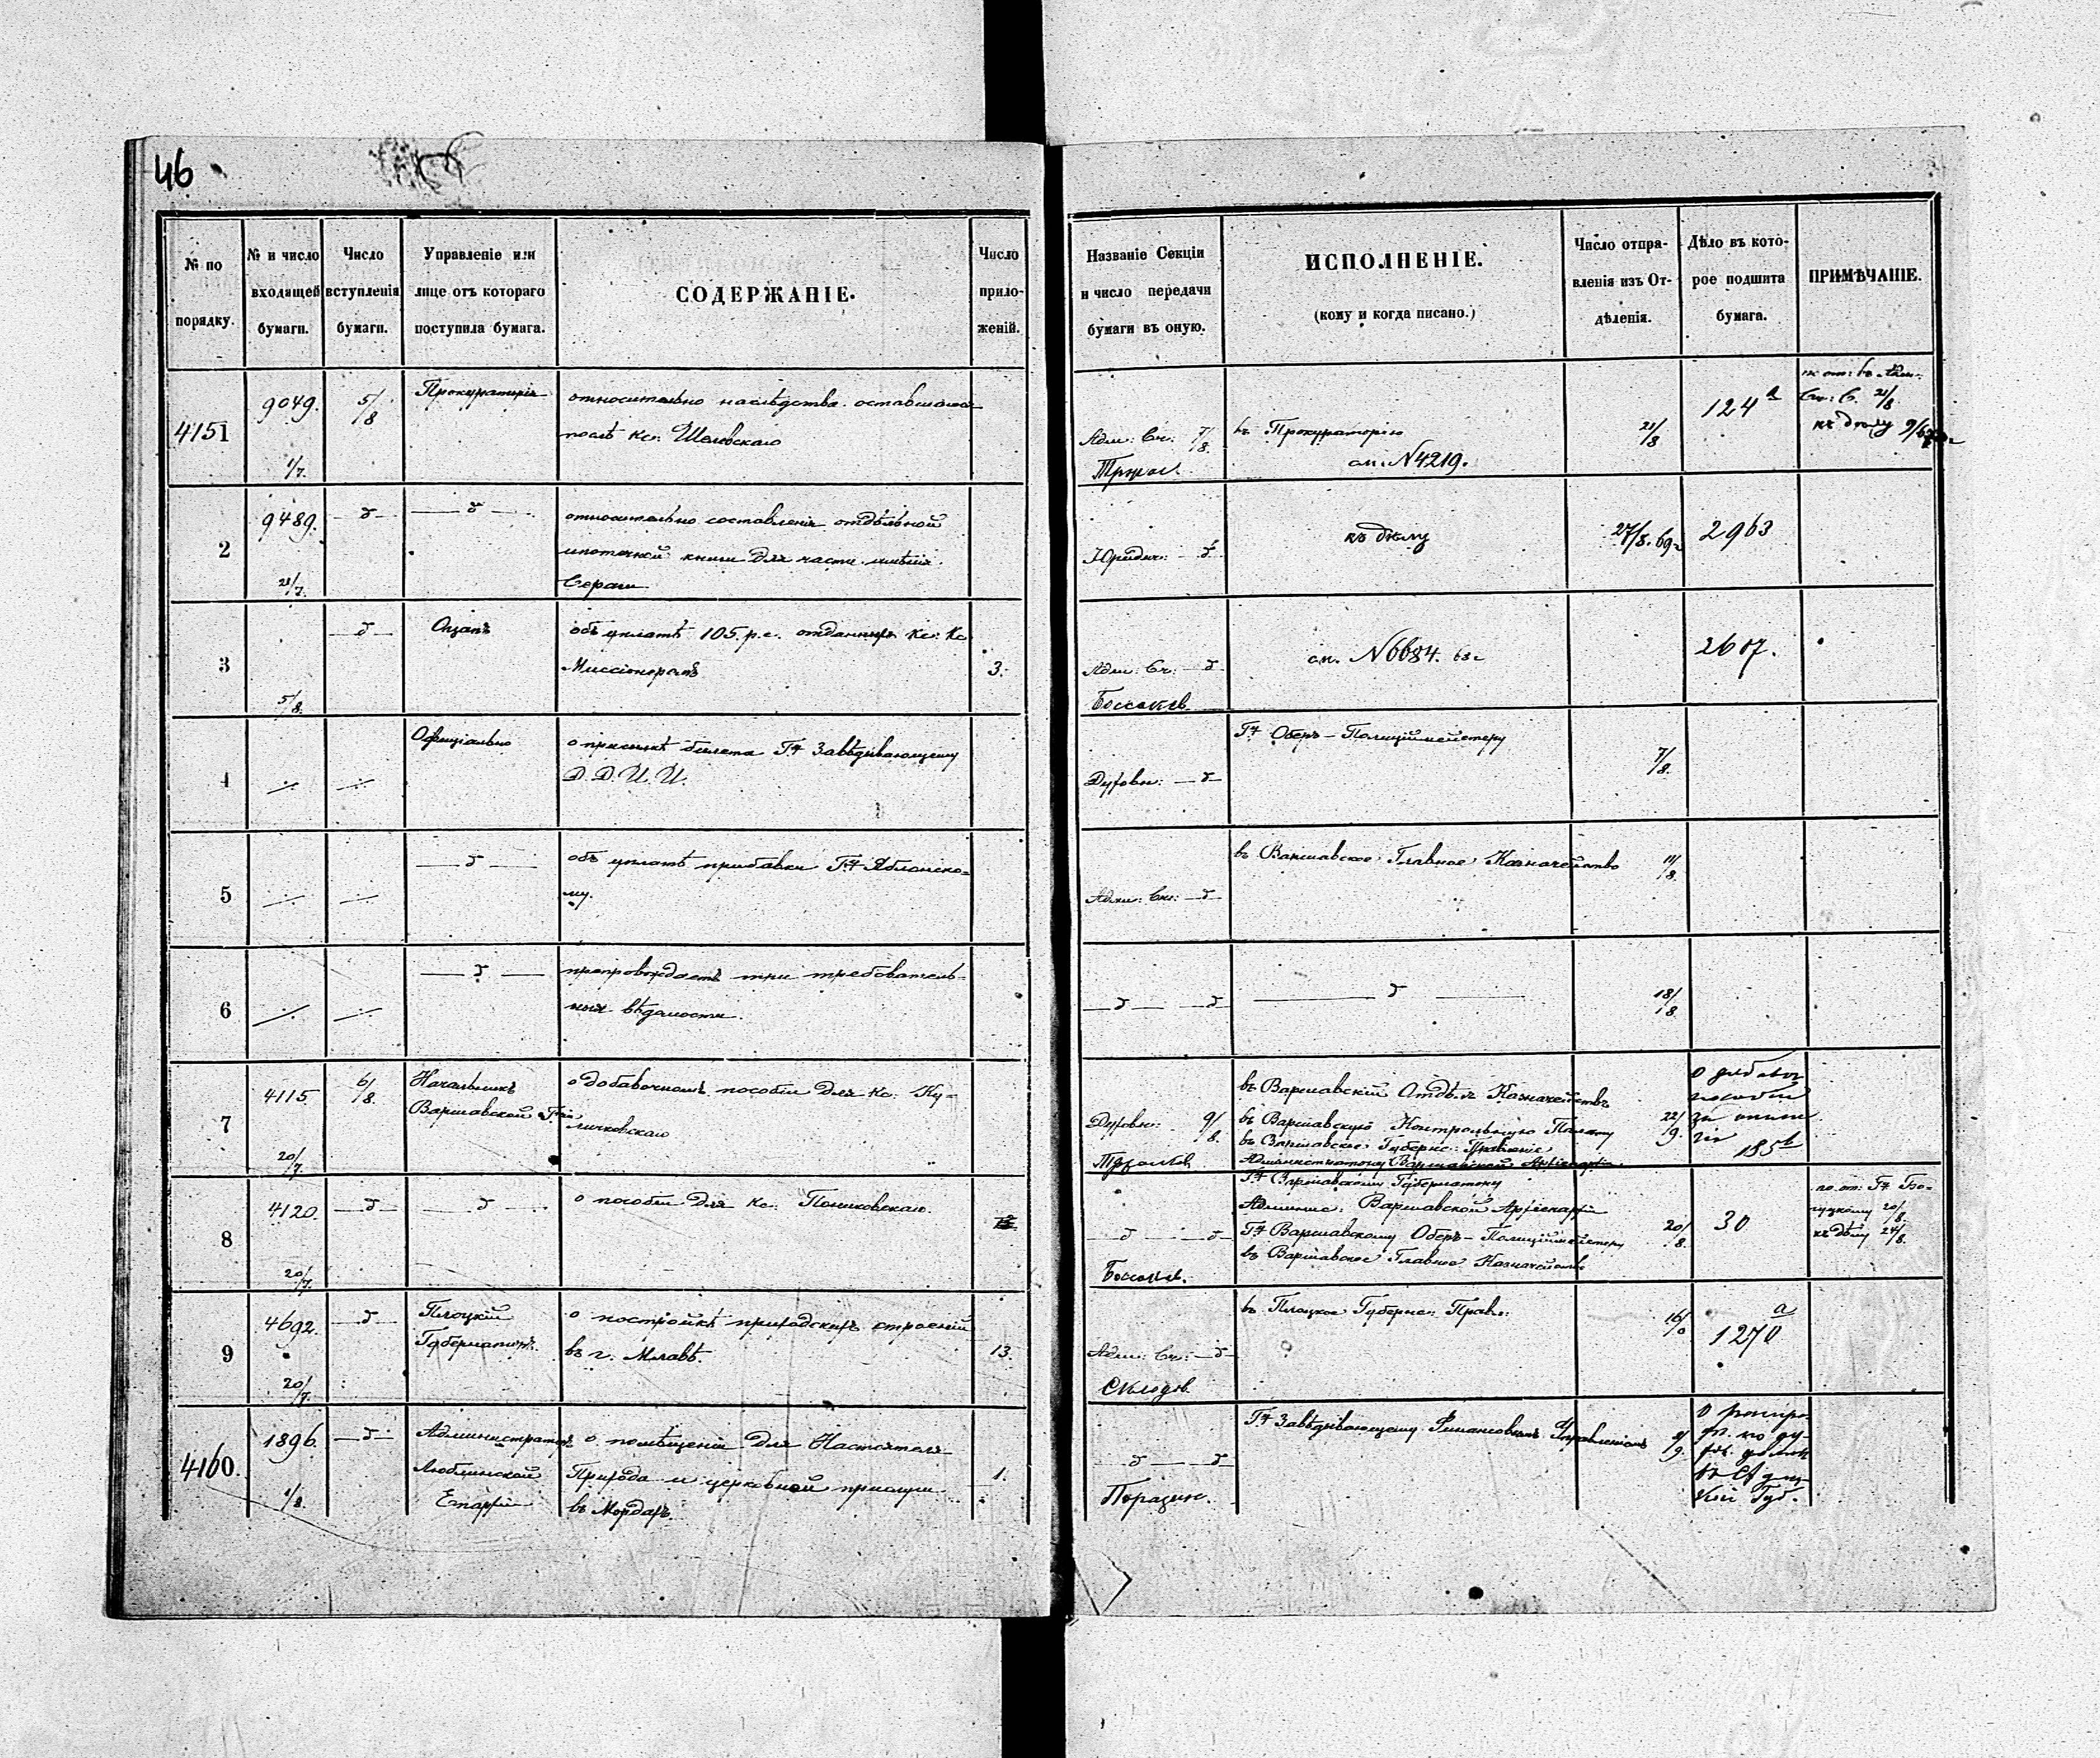 46
№ по порядку.
№ и число входящей бумаги.
Число вступленія бумаги.
Управленіе или лице отъ котораго поступила бумага.
СОДЕРЖАНІЕ.
Число приложеній.
Названіе Секціи и число передачи бумаги въ оную.
ИСПОЛНЕНІЕ.
(кому и когда писано.)
Число отправленія изъ Отдѣленія.
Дѣло въ которое подшита бумага.
ПРИМѢЧАНІЕ.
4151
9049.
1/7.
5/8
Прокураторія
относительно наслѣдства оставшагося
послѣ Кс:
Адм: Сч: 7/8.
въ Прокураторію
см. N 4219.
21/8
124 а
21/8
къ дѣлу
2
9489.
21/7.
— д —
— д —
относительно составленія отдѣльной
ипотечной книги для части имѣнія
Юридич: — д
къ дѣлу
27/8. 69 г
2963
3
5/8.
— д —
объ уплатѣ 105 р.с. отданныхъ Кс: Кс
Миссіонерамъ
3.
Адм: Сч: — д
см. N 6684. 68 г
2617.
4
Официально
о присылкѣ билета Г-у Завѣдывающему
Д. Д. И. И.
Духовн: — д —
Г-у Оберъ-Полиціймейстеру
7/8.
5
— д —
объ уплатѣ прибавки Г-у Яблонско-
му.
Адм: Сч: — д —
въ Варшавское Главное Казначейство
11/8.
6
— д —
препровождаетъ три требователь-
ныя вѣдомости.
— д — — д —
— д —
18/8
7
4115
20/7.
6/8.
Начальникъ
Варшавской Г-іи
о добавочномъ пособіи для Кс: Ку-
личковскаго
Духовн: 9/8.
въ Варшавскій Отдѣлъ Казначействъ
въ Варшавскую Контрольную Палату
въ Варшавское Губернс: Правленіе
Администратору Варшавской Архіепархіи
22/9.
185 b
8
4120.
20/7.
— д —
— д —
о пособіи для Кс: Пониковскаго.
— д — — д —
Г-у Варшавскому Губернатору
Админис: Варшавской Архіепархіи
Г-у Варшавскому Оберъ-Полиціймейстеру
въ Варшавское Главное Казначейство
20/8.
30
20/8.
къ дѣлу 24/8.
9
4692.
20/7.
— д —
Плоцкій
Губернаторъ
о постройкѣ приходскихъ строеній
въ г. Млавѣ.
13.
Адм: Сч: — д —
въ Плоцкое Губернс: Правл:
1270 а
4160.
1896.
1/8.
— д —
Администраторъ
Люблинской
Епархіи
о помѣщеніи для Настоятеля
Прихода и церковной прислуги
въ Мордахъ.
1.
— д — — д
Г-у Завѣдывающему Финансовымъ Управленіемъ